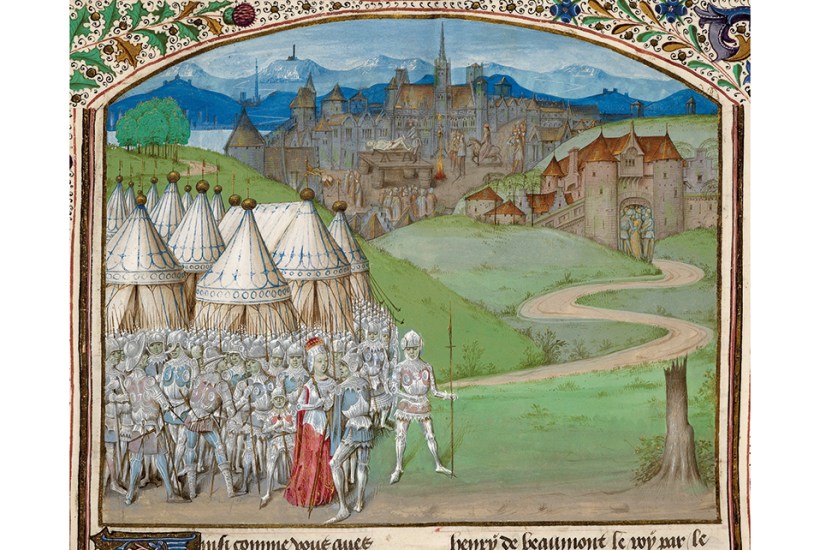 Ainsi comme vous auez
henry de beaumont le roy par le